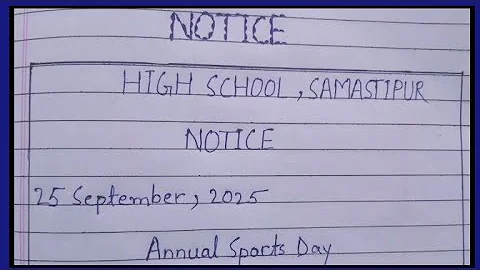 NOTICE
HIGH SCHOOL, SAMASTIPUR
NOTICE
25 September, 2025
Annual Sports Day